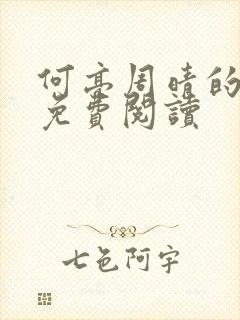 何亭周晴的
免費閱讀
七色阿宇